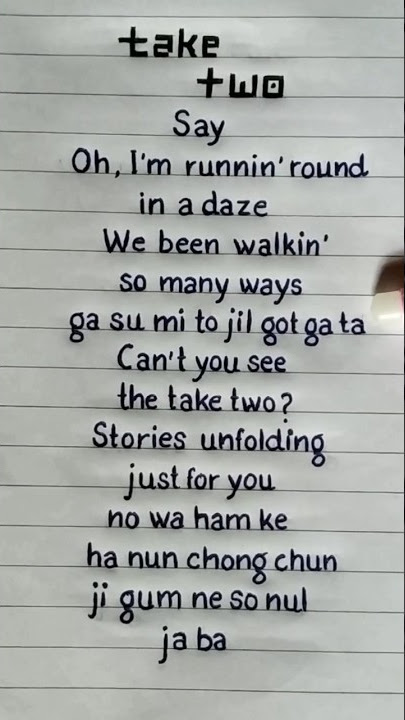 take
two
Say
Oh, I'm runnin' round
in a daze
We been walkin'
so many ways
ga su mi to jil got ga ta
Can't you see
the take two?
Stories unfolding
just for you
no wa ham ke
ha nun chong chun
ji gum ne so nul
ja ba